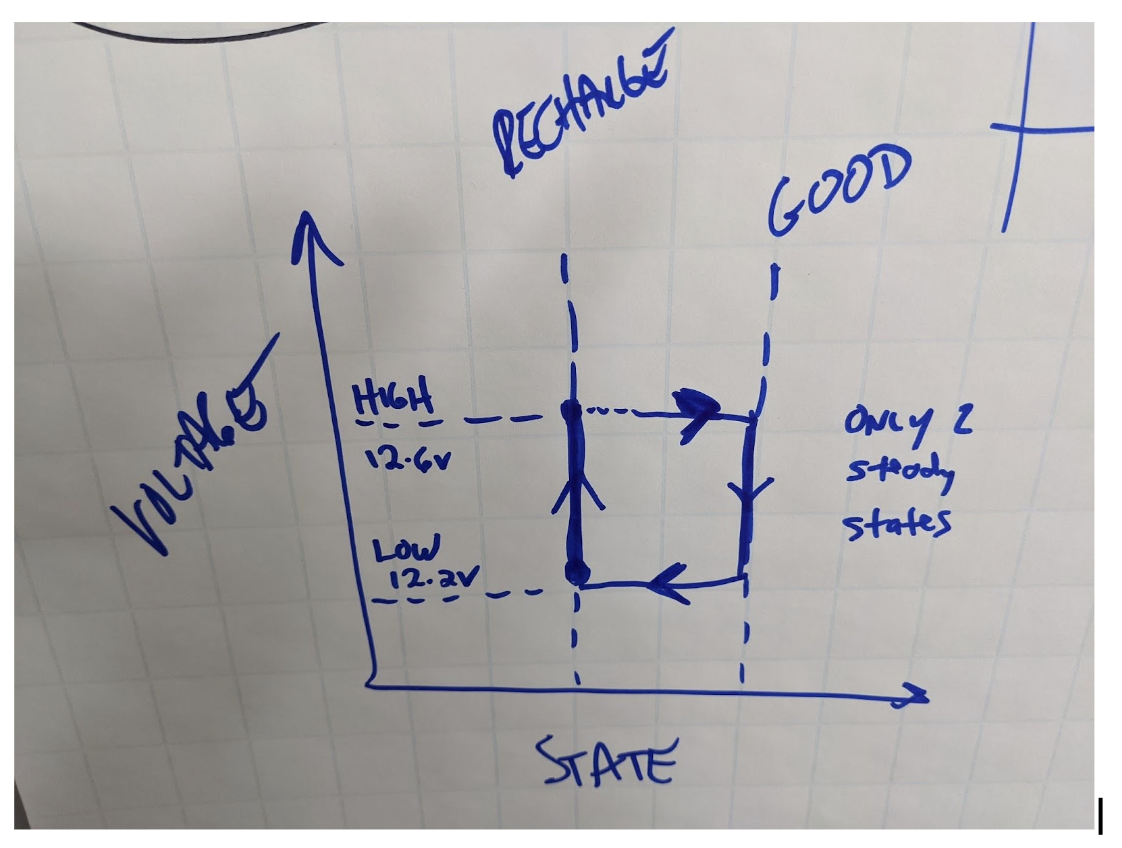 RECHARGE
GOOD
VOLTAGE
HIGH
12.6V
LOW
12.2V
ONLY 2
steady
states
STATE